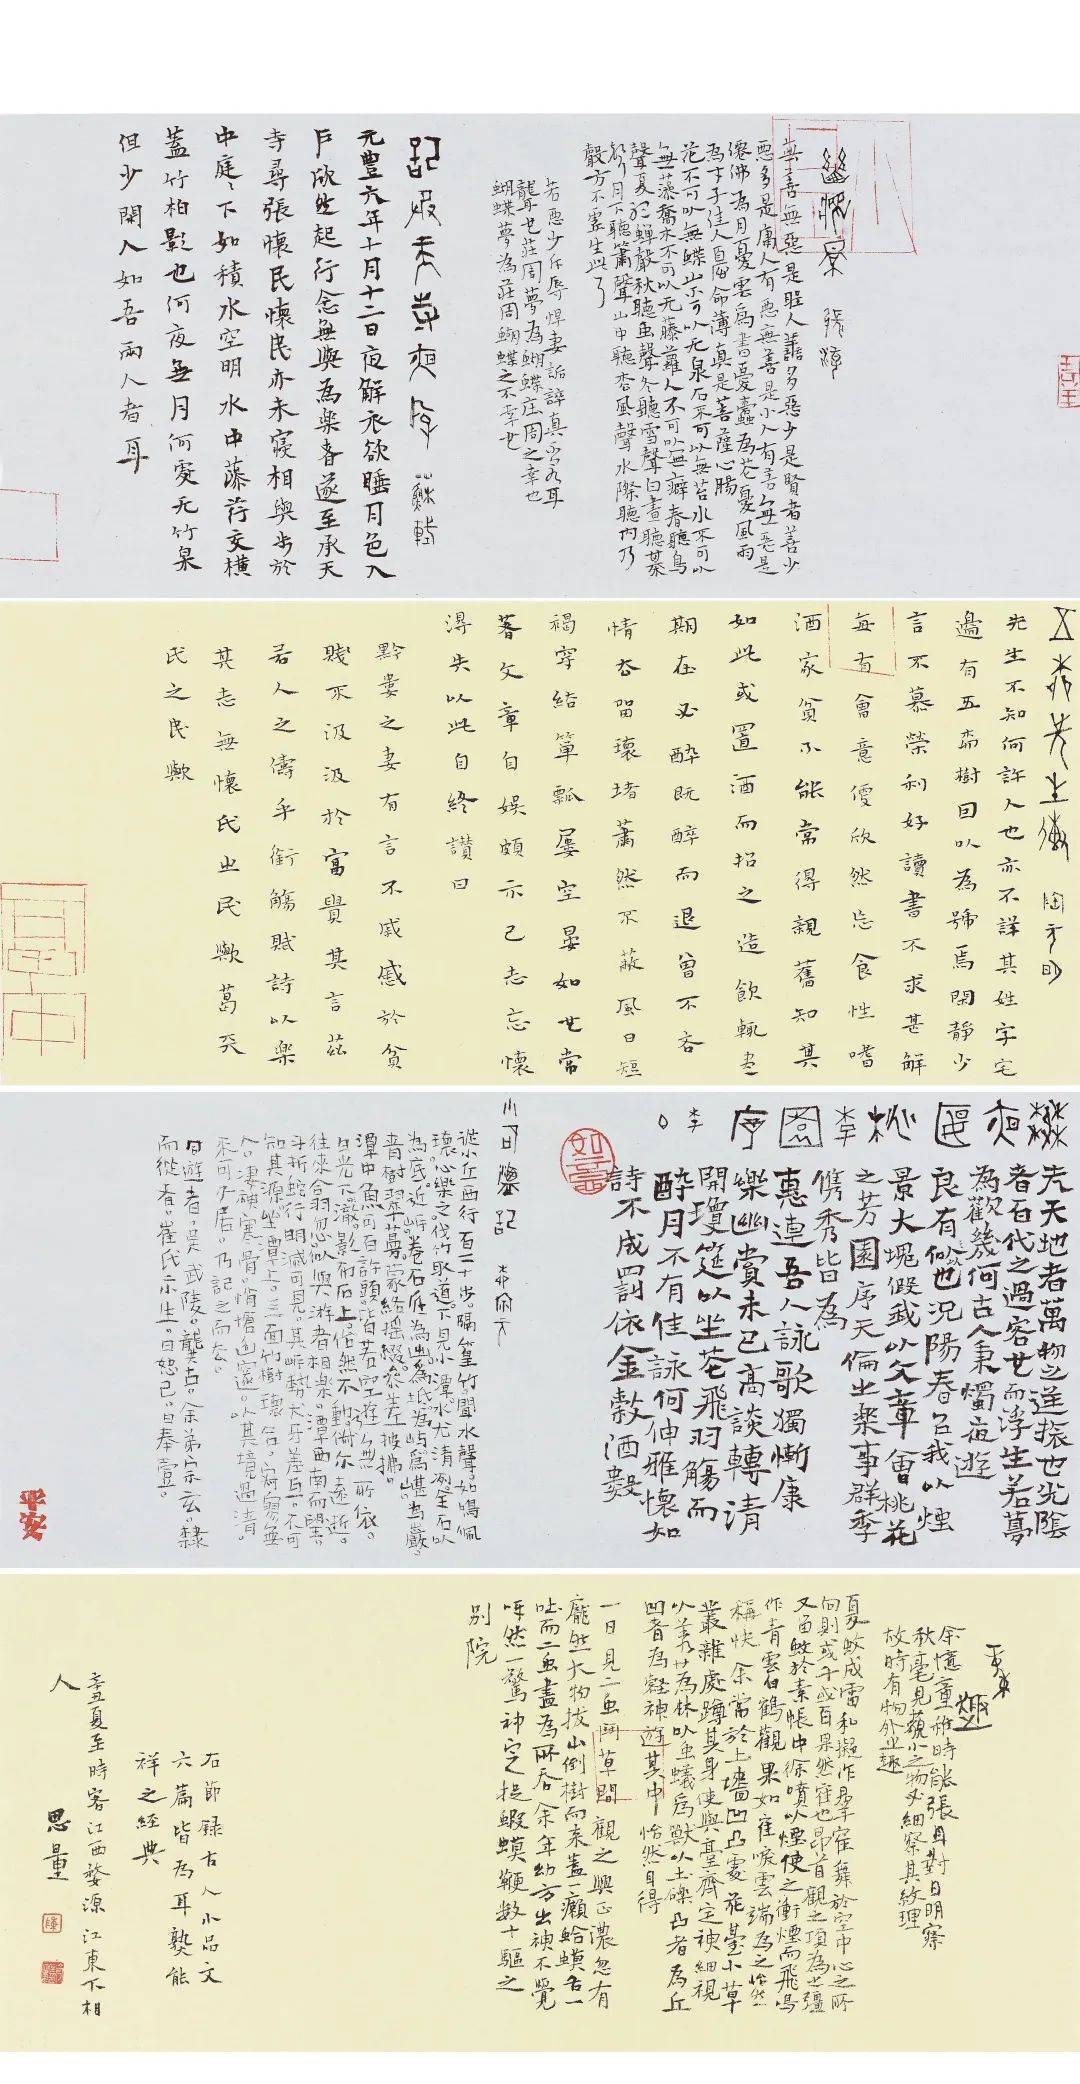 幽夢影 張潮
無善無惡是聖人善多惡少是賢者善少
惡多是庸人有惡無善是小人有善無惡是
仙佛為月憂雲為書憂蠹為花憂風雨
為才子佳人憂命薄真是菩薩心腸
花不可以無蝶山不可以无泉石不可以無苔水不可以
無藻喬木不可以无藤蘿人不可以無癖春聽鳥
聲夏聽蟬聲秋聽蟲聲冬聽雪聲白晝聽棊
聲月下聽簫聲山中聽松風聲水際聽欸乃
聲方不虛生此耳
若惡少斥辱悍妻詬誶真不若耳
聾也莊周夢為蝴蝶莊周之幸也
蝴蝶夢為莊周蝴蝶之不幸也
記承天寺夜遊 蘇軾
元豐六年十月十二日夜解衣欲睡月色入
戶欣然起行念無與為樂者遂至承天
寺尋張懷民懷民亦未寢相與步於
中庭〻下如積水空明水中藻荇交橫
蓋竹柏影也何夜無月何處无竹柏
但少閑人如吾兩人者耳
五柳先生傳 陶淵明
先生不知何許人也亦不詳其姓字宅
邊有五柳樹因以為號焉閑靜少
言不慕榮利好讀書不求甚解
每有會意便欣然忘食性嗜
酒家貧不能常得親舊知其
如此或置酒而招之造飲輒盡
期在必醉既醉而退曾不吝
情去留環堵蕭然不蔽風日短
褐穿結簞瓢屢空晏如也常
著文章自娛頗示己志忘懷
得失以此自終讚曰
黔婁之妻有言不戚戚於貧
賤不汲汲於富貴其言茲
若人之儔乎銜觴賦詩以樂
其志無懷氏之民歟葛天
氏之民歟
春夜宴桃李園序 李白
夫天地者萬物之逆旅也光陰
者百代之過客也而浮生若夢
為歡幾何古人秉燭夜遊
良有以也況陽春召我以煙
景大塊假我以文章會桃花
之芳園序天倫之樂事群季
儁秀皆為
惠連吾人詠歌獨慚康
樂幽賞未已高談轉清
開瓊筵以坐花飛羽觴而
醉月不有佳詠何伸雅懷如
詩不成罰依金穀酒數
小石潭記 柳宗元
從小丘西行百二十步。隔篁竹。聞水聲。如鳴佩
環。心樂之。伐竹取道。下見小潭。水尤清冽。全石以
為底。近岸。卷石底為出。為坻。為嶼。為嵁。為巖。
青樹翠蔓。蒙絡搖綴。參差披拂。
潭中魚可百許頭。皆若空遊。無所依。
日光下澈。影布石上。佁然不動。俶爾遠逝。
往來翕忽。似與游者相樂。潭西南而望。
斗折蛇行。明滅可見。其岸勢犬牙差互。不可
知其源。坐潭上。四面竹樹環合。寂寥無
人。凄神寒骨。悄愴幽邃。以其境過清。
不可久居。乃記之而去。
同遊者。吳武陵。龔古。余弟宗玄。隸
而從者。崔氏二小生。曰恕己。曰奉壹。
平安
童趣
余憶童稚時能張目對日明察
秋毫見藐小之物必細察其紋理
故時有物外之趣
夏蚊成雷私擬作羣鶴舞於空中心之所
向則或千或百果然鶴也昂首觀之項為之彊
又留蚊於素帳中徐噴以煙使之衝煙而飛鳴
作青雲白鶴觀果如鶴唳雲端為之怡然
稱快余常於土墻凹凸處花臺小草
叢雜處蹲其身使與臺齊定神細視
以叢草為林以虫蟻為獸以土礫凸者為丘
凹者為壑神遊其中怡然自得
一日見二虫鬥草間觀之興正濃忽有
龐然大物拔山倒樹而來蓋一癩蛤蟆舌一
吐而二虫盡為所吞余年幼方出神不覺
呀然一驚神定捉蝦蟆鞭數十驅之
別院
右節錄古人小品文
六篇皆為耳熟能
祥之經典
辛丑夏至時客江西婺源江東下相
人
思量